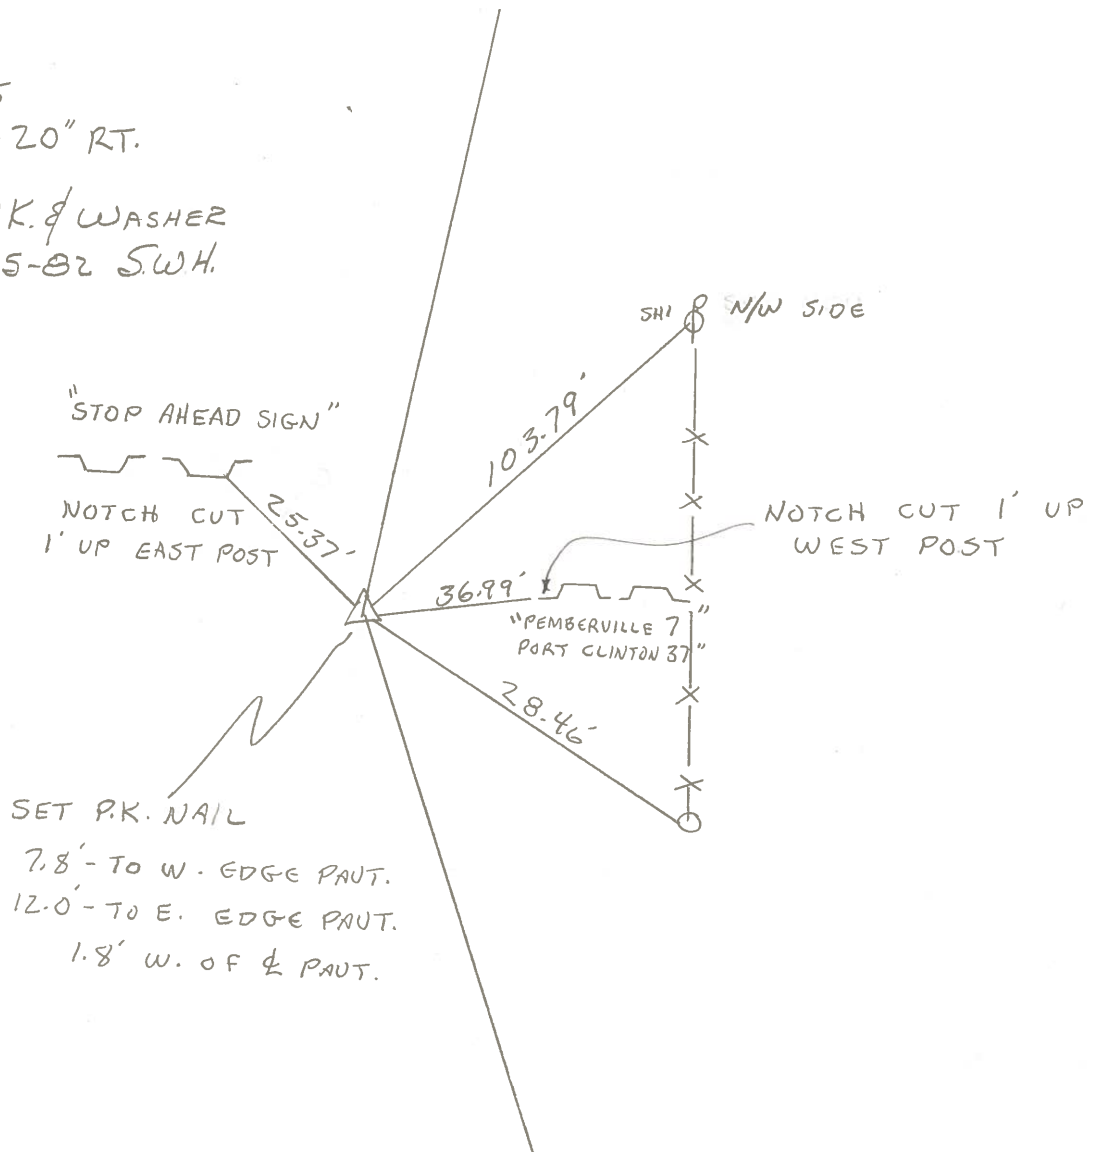 20" RT.
K. & WASHER
5-82 S.W.H.
SHI N/W SIDE
103.79'
"STOP AHEAD SIGN"
NOTCH CUT
1' UP EAST POST
25.37'
NOTCH CUT 1' UP
WEST POST
36.99'
"PEMBERVILLE 7"
PORT CLINTON 37"
28.46'
SET P.K. NAIL
7.8'- TO W. EDGE PAVT.
12.0'- TO E. EDGE PAVT.
1.8' W. OF ℄ PAVT.